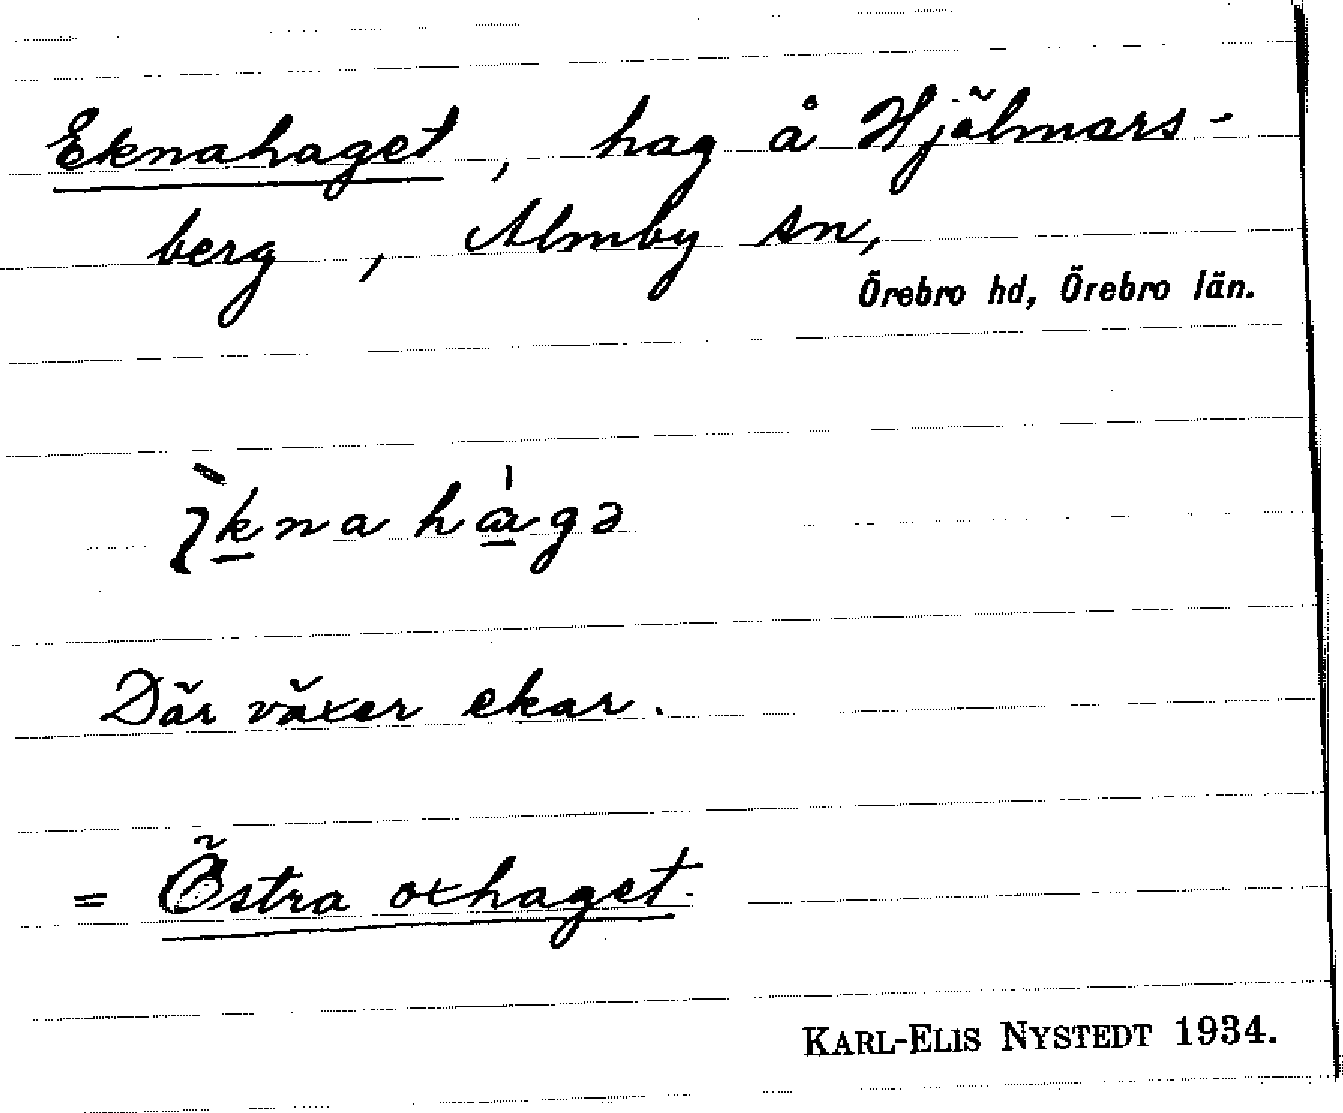 Eknahaget, hag å Hjälmars-
berg, Almby sn,
Örebro hd, Örebro län.
Där växer ekar.
= Östra oxhaget.
KARL-ELIS NYSTEDT 1934.